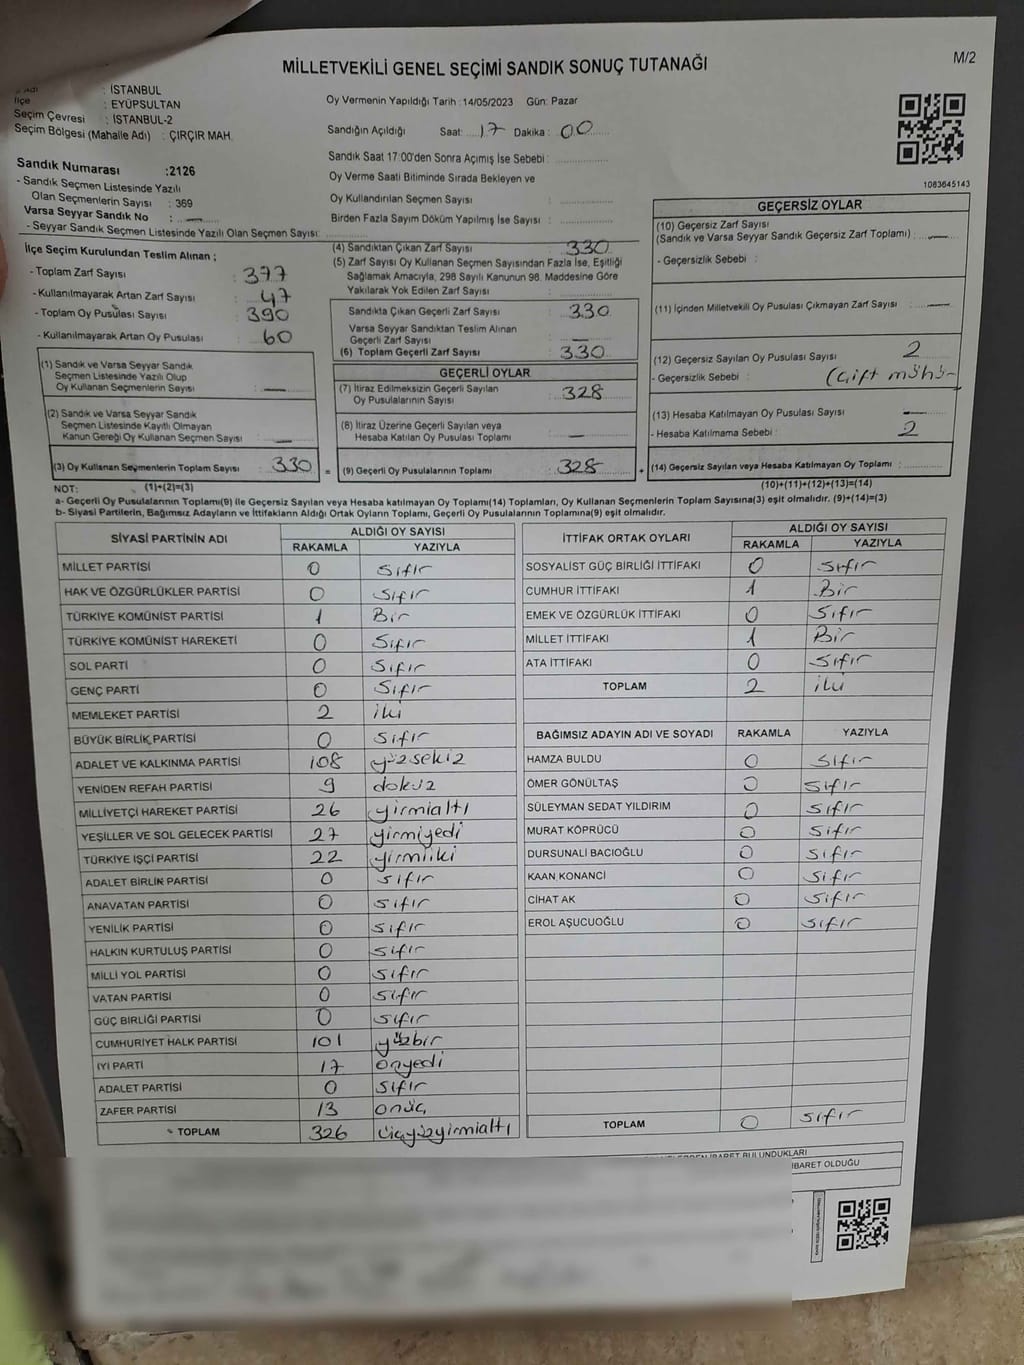 MİLLETVEKİLİ GENEL SEÇİMİ SANDIK SONUÇ TUTANAĞI
M/2
: İSTANBUL
İlçe : EYÜPSULTAN
Seçim Çevresi : İSTANBUL-2
Seçim Bölgesi (Mahalle Adı) : ÇIRÇIR MAH.
Sandık Numarası :2126
- Sandık Seçmen Listesinde Yazılı
Olan Seçmenlerin Sayısı : 369
Varsa Seyyar Sandık No : —
- Seyyar Sandık Seçmen Listesinde Yazılı Olan Seçmen Sayısı:
Oy Vermenin Yapıldığı Tarih :14/05/2023 Gün: Pazar
Sandığın Açıldığı Saat: 17 Dakika : 00
Sandık Saat 17:00'den Sonra Açımış İse Sebebi :
Oy Verme Saati Bitiminde Sırada Bekleyen ve
Oy Kullandırılan Seçmen Sayısı :
Birden Fazla Sayım Döküm Yapılmış İse Sayısı :
1083645143
İlçe Seçim Kurulundan Teslim Alınan ;
- Toplam Zarf Sayısı : 377
- Kullanılmayarak Artan Zarf Sayısı : 47
- Toplam Oy Pusulası Sayısı : 390
- Kullanılmayarak Artan Oy Pusulası : 60
(1) Sandık ve Varsa Seyyar Sandık
Seçmen Listesinde Yazılı Olup
Oy Kullanan Seçmenlerin Sayısı : —
(2) Sandık ve Varsa Seyyar Sandık
Seçmen Listesinde Kayıtlı Olmayan
Kanun Gereği Oy Kullanan Seçmen Sayısı : —
(3) Oy Kullanan Seçmenlerin Toplam Sayısı : 330
(4) Sandıktan Çıkan Zarf Sayısı : 330
(5) Zarf Sayısı Oy Kullanan Seçmen Sayısından Fazla İse, Eşitliği
Sağlamak Amacıyla, 298 Sayılı Kanunun 98. Maddesine Göre
Yakılarak Yok Edilen Zarf Sayısı :
Sandıkta Çıkan Geçerli Zarf Sayısı : 330
Varsa Seyyar Sandıktan Teslim Alınan
Geçerli Zarf Sayısı : —
(6) Toplam Geçerli Zarf Sayısı : 330
GEÇERLİ OYLAR
(7) İtiraz Edilmeksizin Geçerli Sayılan
Oy Pusulalarının Sayısı : 328
(8) İtiraz Üzerine Geçerli Sayılan veya
Hesaba Katılan Oy Pusulası Toplamı : —
= (9) Geçerli Oy Pusulalarının Toplamı : 328
GEÇERSİZ OYLAR
(10) Geçersiz Zarf Sayısı
(Sandık ve Varsa Seyyar Sandık Geçersiz Zarf Toplamı) : —
- Geçersizlik Sebebi :
(11) İçinden Milletvekili Oy Pusulası Çıkmayan Zarf Sayısı : —
(12) Geçersiz Sayılan Oy Pusulası Sayısı : 2
- Geçersizlik Sebebi : (Çift mühür
(13) Hesaba Katılmayan Oy Pusulası Sayısı : —
- Hesaba Katılmama Sebebi : 2
+ (14) Geçersiz Sayılan veya Hesaba Katılmayan Oy Toplamı :
NOT: (1)+(2)=(3)
(10)+(11)+(12)+(13)=(14)
a- Geçerli Oy Pusulalarının Toplamı(9) ile Geçersiz Sayılan veya Hesaba katılmayan Oy Toplamı(14) Toplamları, Oy Kullanan Seçmenlerin Toplam Sayısına(3) eşit olmalıdır. (9)+(14)=(3)
b- Siyasi Partilerin, Bağımsız Adayların ve İttifakların Aldığı Ortak Oyların Toplamı, Geçerli Oy Pusulalarının Toplamına(9) eşit olmalıdır.
SİYASİ PARTİNİN ADI ALDIĞI OY SAYISI
RAKAMLA YAZIYLA
MİLLET PARTİSİ 0 sıfır
HAK VE ÖZGÜRLÜKLER PARTİSİ 0 sıfır
TÜRKİYE KOMÜNİST PARTİSİ 1 Bir
TÜRKİYE KOMÜNİST HAREKETİ 0 sıfır
SOL PARTİ 0 sıfır
GENÇ PARTİ 0 sıfır
MEMLEKET PARTİSİ 2 iki
BÜYÜK BİRLİK PARTİSİ 0 sıfır
ADALET VE KALKINMA PARTİSİ 108 yüzsekiz
YENİDEN REFAH PARTİSİ 9 dokuz
MİLLİYETÇİ HAREKET PARTİSİ 26 yirmialtı
YEŞİLLER VE SOL GELECEK PARTİSİ 27 yirmiyedi
TÜRKİYE İŞÇİ PARTİSİ 22 yirmiiki
ADALET BİRLİK PARTİSİ 0 sıfır
ANAVATAN PARTİSİ 0 sıfır
YENİLİK PARTİSİ 0 sıfır
HALKIN KURTULUŞ PARTİSİ 0 sıfır
MİLLİ YOL PARTİSİ 0 sıfır
VATAN PARTİSİ 0 sıfır
GÜÇ BİRLİĞİ PARTİSİ 0 sıfır
CUMHURİYET HALK PARTİSİ 101 yüzbir
İYİ PARTİ 17 onyedi
ADALET PARTİSİ 0 sıfır
ZAFER PARTİSİ 13 onüç
TOPLAM 326 üçyüzyirmialtı
İTTİFAK ORTAK OYLARI ALDIĞI OY SAYISI
RAKAMLA YAZIYLA
SOSYALİST GÜÇ BİRLİĞİ İTTİFAKI 0 sıfır
CUMHUR İTTİFAKI 1 Bir
EMEK VE ÖZGÜRLÜK İTTİFAKI 0 sıfır
MİLLET İTTİFAKI 1 Bir
ATA İTTİFAKI 0 sıfır
TOPLAM 2 iki
BAĞIMSIZ ADAYIN ADI VE SOYADI RAKAMLA YAZIYLA
HAMZA BULDU 0 sıfır
ÖMER GÖNÜLTAŞ 0 sıfır
SÜLEYMAN SEDAT YILDIRIM 0 sıfır
MURAT KÖPRÜCÜ 0 sıfır
DURSUNALİ BACIOĞLU 0 sıfır
KAAN KONANCİ 0 sıfır
CİHAT AK 0 sıfır
EROL AŞUCUOĞLU 0 sıfır
TOPLAM 0 sıfır
İBARET BULUNDUKLARI
İBARET OLDUĞU